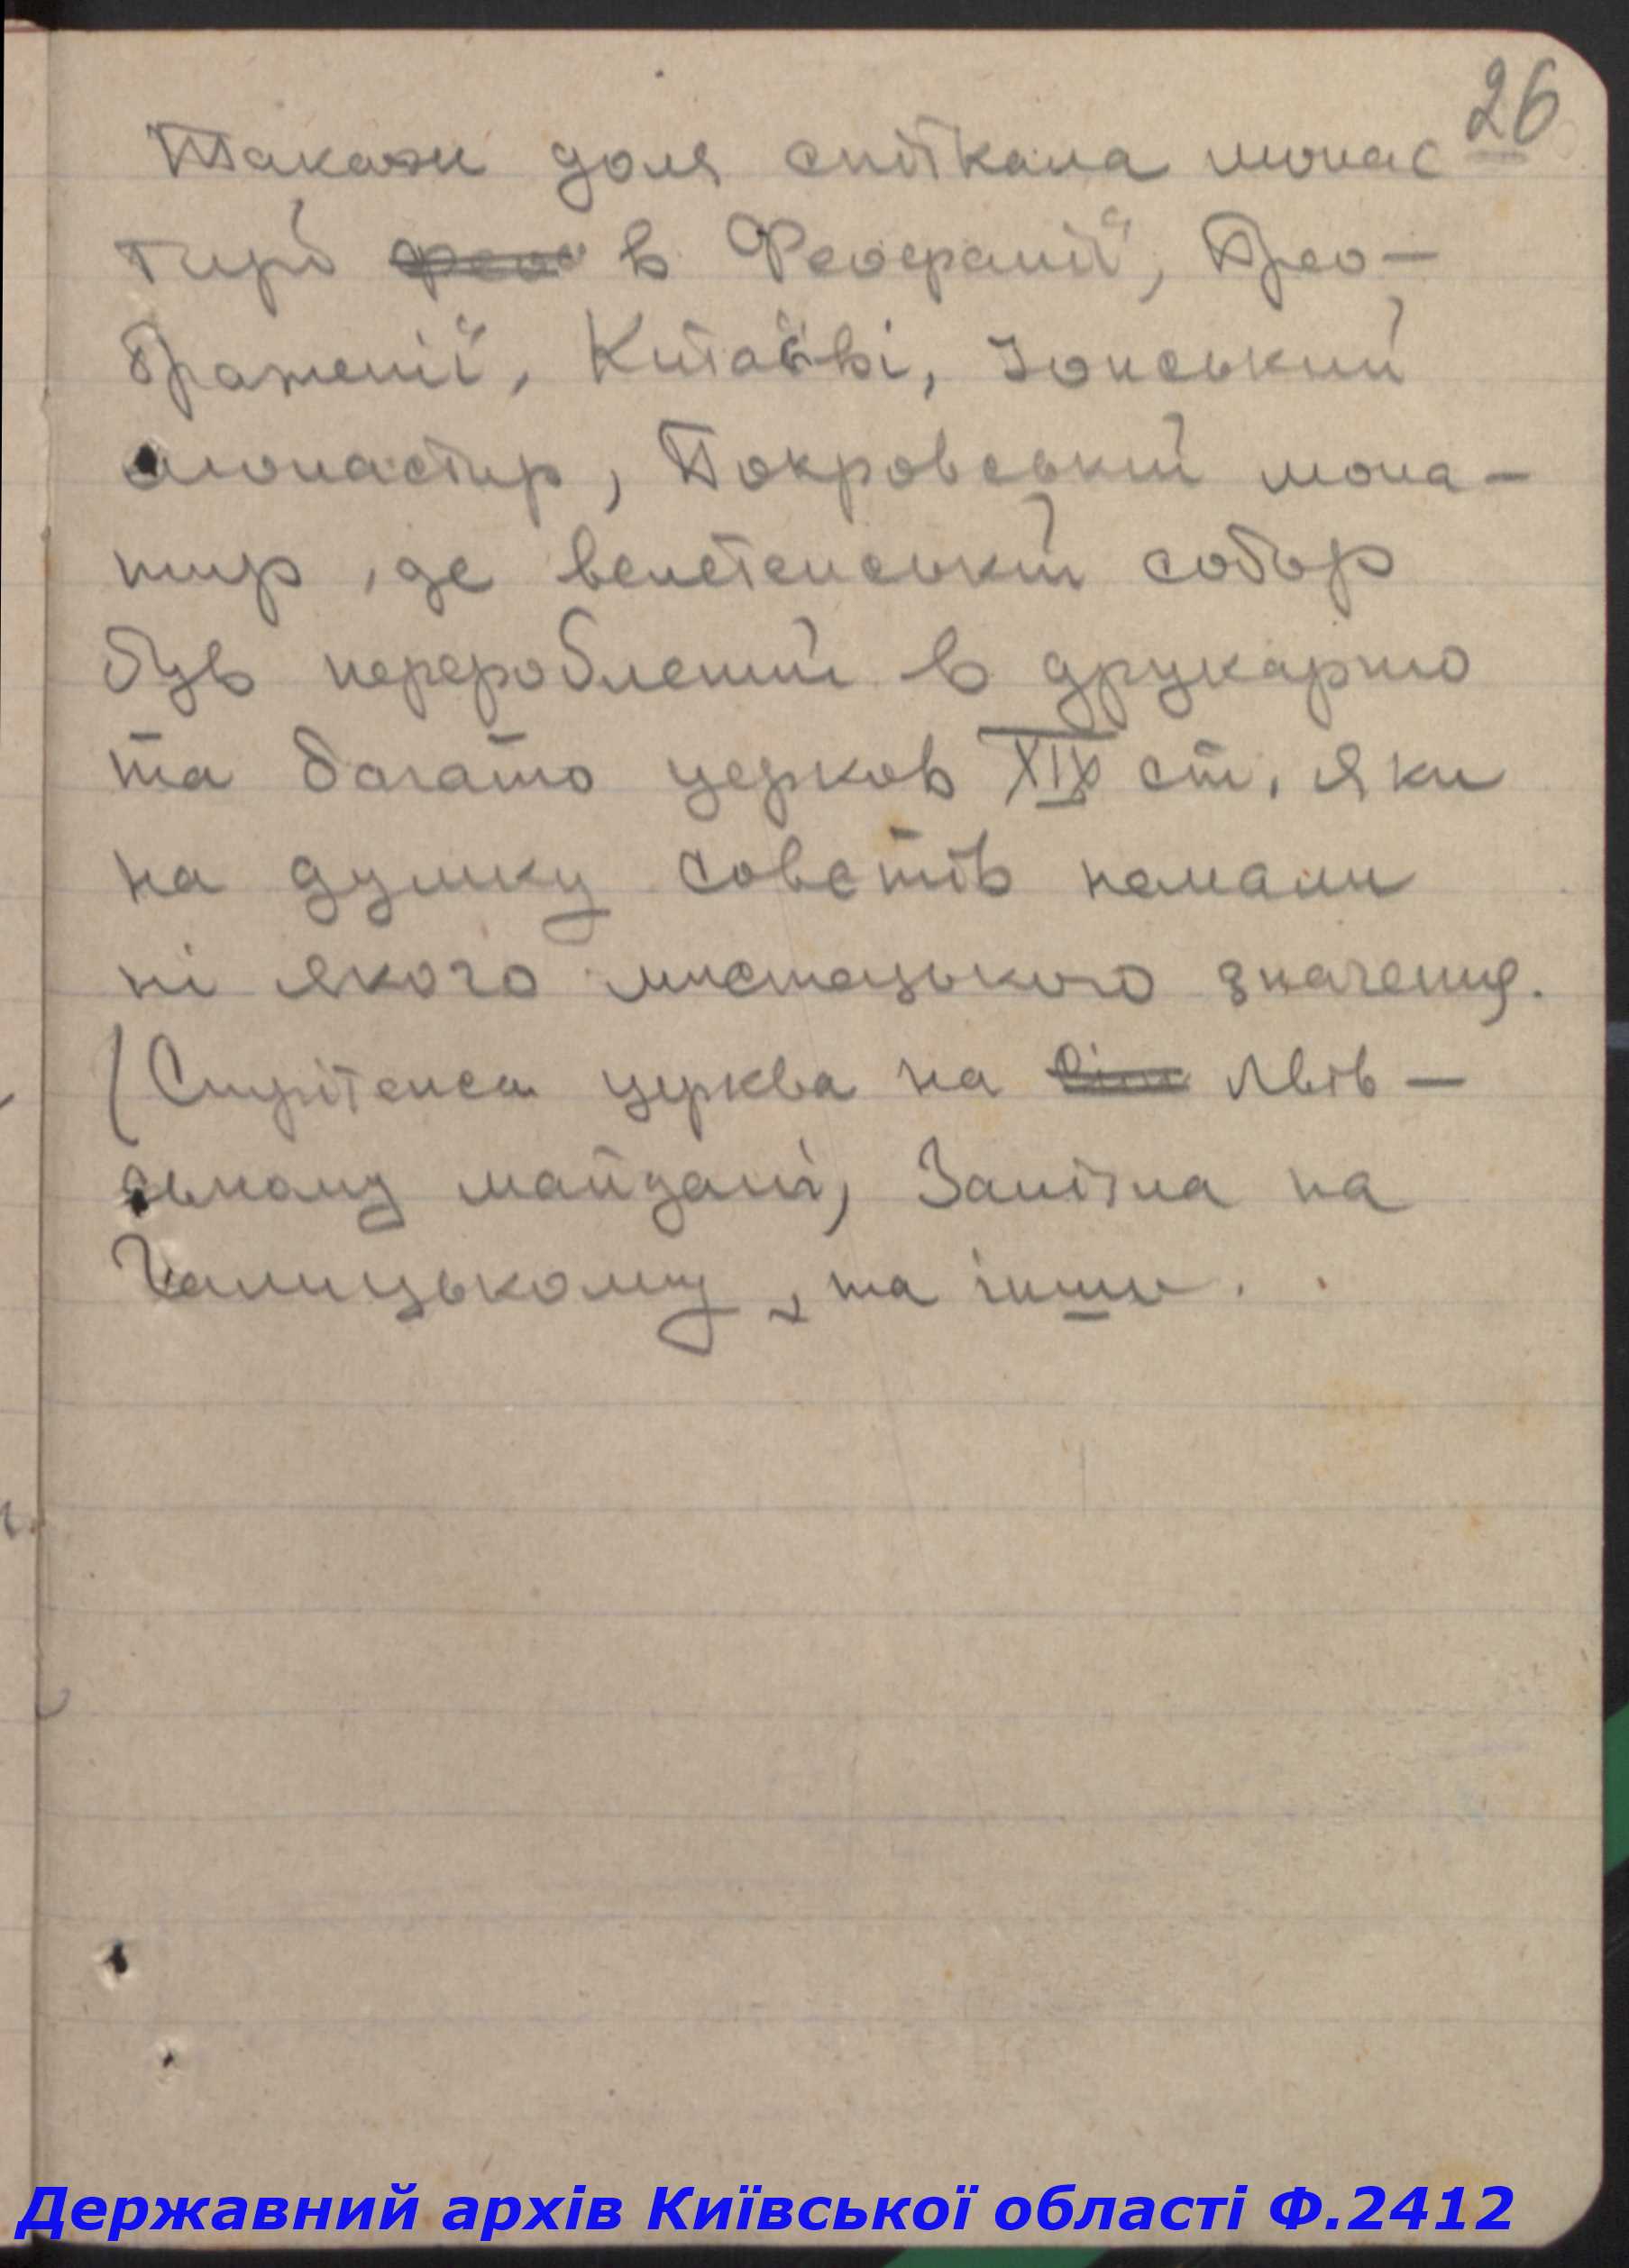 26
Такаж доля спіткала монас
тирі в Феофанії, Прео-
браженії, Китаїві, Іонський
монастир, Покровський мона-
тир, де велетенський собор
був перероблений в друкарню
та багато церков XIX ст. яки
на думку советів немали
ні якого мистецького значення.
(Стрітенса церква на Львів-
ському майдані, на
Галицькому, та інши.
Державний архів Київської області Ф.2412